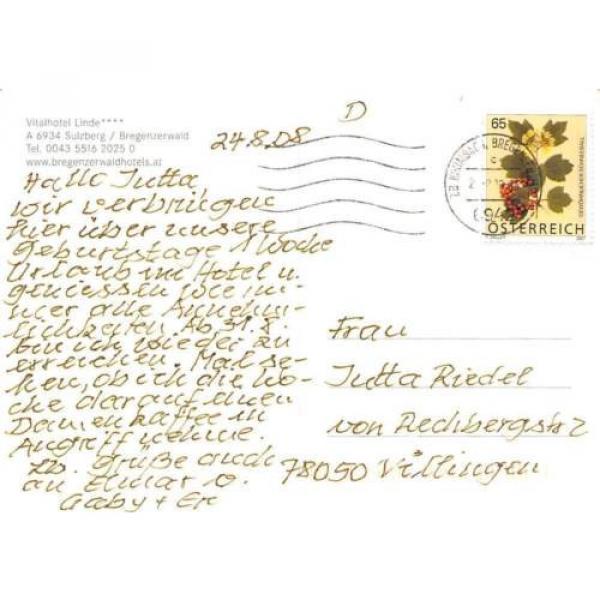 Vitalhotel Linde****
A 6934 Sulzberg / Bregenzerwald
Tel. 0043 5516 2025 0
www.bregenzerwaldhotels.at
D
24.8.08
Hallo Jutta,
wir verbringen
hier über unsere
Geburtstage 1 Woche
Urlaub im Hotel u.
geniessen wie im-
mer alle Annehm-
lichkeiten. Ab 31.8.
bin ich wieder zu
erreichen. Mal se-
hen, ob ich die Wo-
che darauf einen
Damenkaffee in
Angriff nehme.
Lb. Grüße auch
an Elmar v.
Gaby +
65
GEWÖHNLICHER SCHNEEBALL
ÖSTERREICH
2007
BREGENZ
694
Frau
Jutta Riedel
von Rechbergstr 2
78050 Villingen